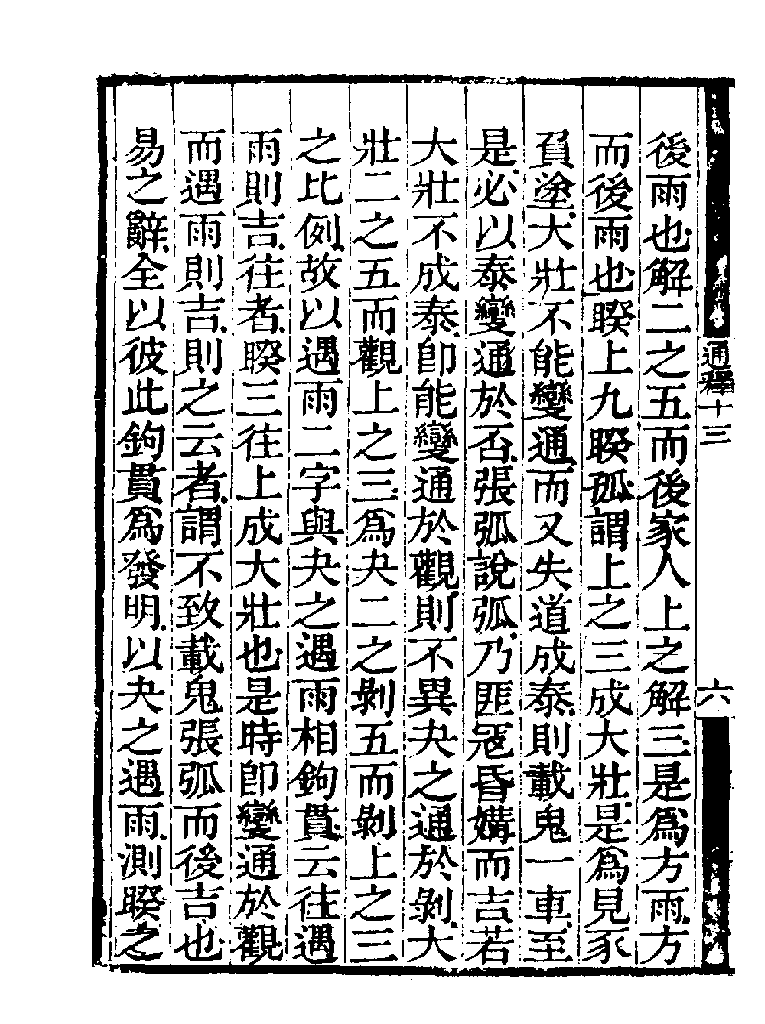 後雨也解二之五而後家人上之解三是爲方雨方
而後雨也睽上九睽孤謂上之三成大壯是爲見豕
負塗大壯不能變通而又失道成泰則載鬼一車至
是必以泰變通於否張弧說弧乃匪寇昏媾而吉若
大壯不成泰卽能變通於觀則不異夬之通於剝大
壯二之五而觀上之三爲夬二之剝五而剝上之三
之比例故以遇雨二字與夬之遇雨相鉤貫云往遇
雨則吉往者睽三往上成大壯也是時卽變通於觀
而遇雨則吉則之云者謂不致載鬼張弧而後吉也
易之辭全以彼此鉤貫爲發明以夬之遇雨測睽之
通釋十三
六